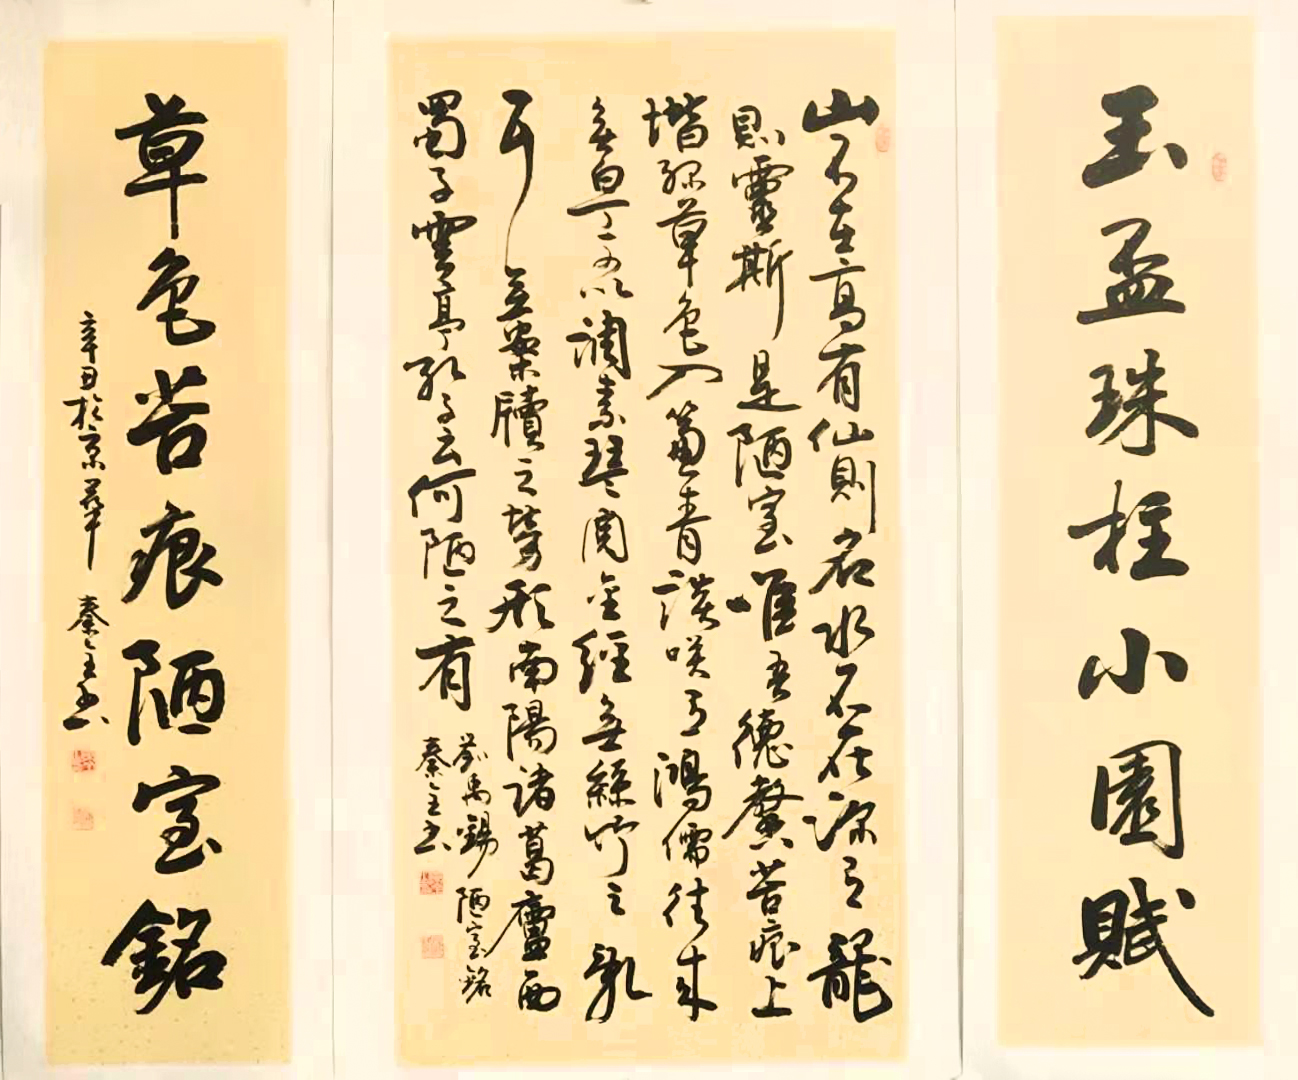 玉盃珠柱小園賦
山不在高有仙則名水不在深有龍
則靈斯是陋室唯吾德馨苔痕上
堦綠草色入簾青談咲有鴻儒往来
無白丁可以調素琴閱金經無絲竹之亂
耳無案牘之勞形南陽諸葛廬西
蜀子雲亭孔子云何陋之有
劉禹錫陋室銘
秦書
草色苔痕陋室銘
辛丑於京華 秦書